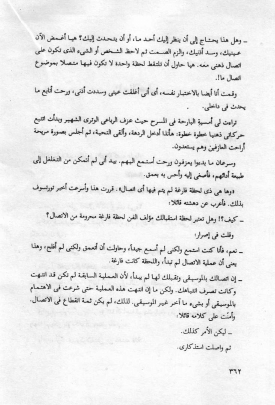 – وهل هذا يحتاج إلى أن ينظر إليك أحد ما، أو أن يتحدث إليك؟ هيا أغمض الآن
عينيك، وسد أذنيك، والزم الصمت ثم لاحظ الشخص أو الشيء الذى تكون على
اتصال ذهنى معه. هيا حاول أن تلتقط لحظة واحدة لا تكون فيها متصلا بموضوع
اتصال ما!.
وقمت أنا أيضا بالاختبار نفسه، أى أنى أغلقت عينى وسددت أذنى، ورحت أتابع ما
يحدث فى داخلى.
تراءت لى أمسية البارحة فى المسرح حيث عزف الرباعى الوترى الشهير وبدأت أتتبع
حركاتى ذهنيا خطوة خطوة: هأنذا أدخل الردهة، وألقى التحية، ثم أجلس بصورة مريحة
أراحت العازفين وهم يستعدون.
وسرعان ما بدءوا يعزفون ورحت أستمع إليهم. بيد أنى لم أتمكن من التغلغل إلى
طبيعة أدائهم، فأصغى إليه وأحس به بعمق.
«وها هى ذى لحظة فارغة لم يتم فيها أى اتصال». قررت هذا وأسرعت أخبر تورتسوف
بذلك. فأعرب عن دهشته قائلا:
– كيف؟! وهل تعتبر لحظة استقبالك مؤلف الفن لحظة فارغة محرومة من الاتصال؟
وقلت فى إصرار:
– نعم، فأنا كنت أستمع ولكنى لم أسمع جيدا، وحاولت أن أتعمق ولكنى لم أفلح، وهذا
يعنى أن عملية الاتصال لم تبدأ، واللحظة كانت فارغة.
– إن اتصالك بالموسيقى وتقبلك لها لم يبدأ، لأن العملية السابقة لم تكن قد انتهت
وكانت تصرف انتباهك. ولكن ما إن انتهت هذه العملية حتى شرعت فى الاهتمام
بالموسيقى أو بشىء ما آخر غير الموسيقى. لذلك، لم يكن ثمة انقطاع فى الاتصال.
وأمنت على كلامه قائلا:
– ليكن الأمر كذلك.
ثم واصلت استذكارى.
٣٦٢